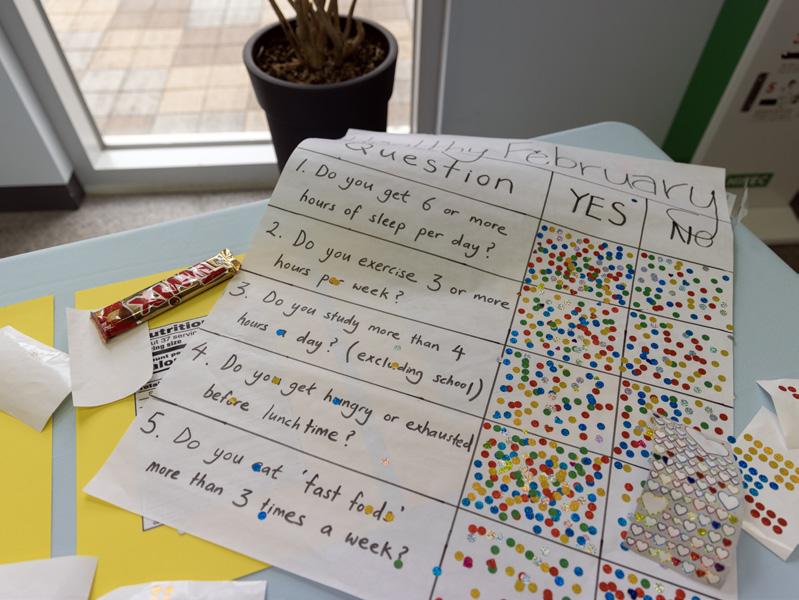 Healthy February
Question YES NO
1. Do you get 6 or more
hours of sleep per day?
2. Do you exercise 3 or more
hours per week?
3. Do you study more than 4
hours a day? (excluding school)
4. Do you get hungry or exhausted
before lunch time?
5. Do you eat 'fast foods'
more than 3 times a week?